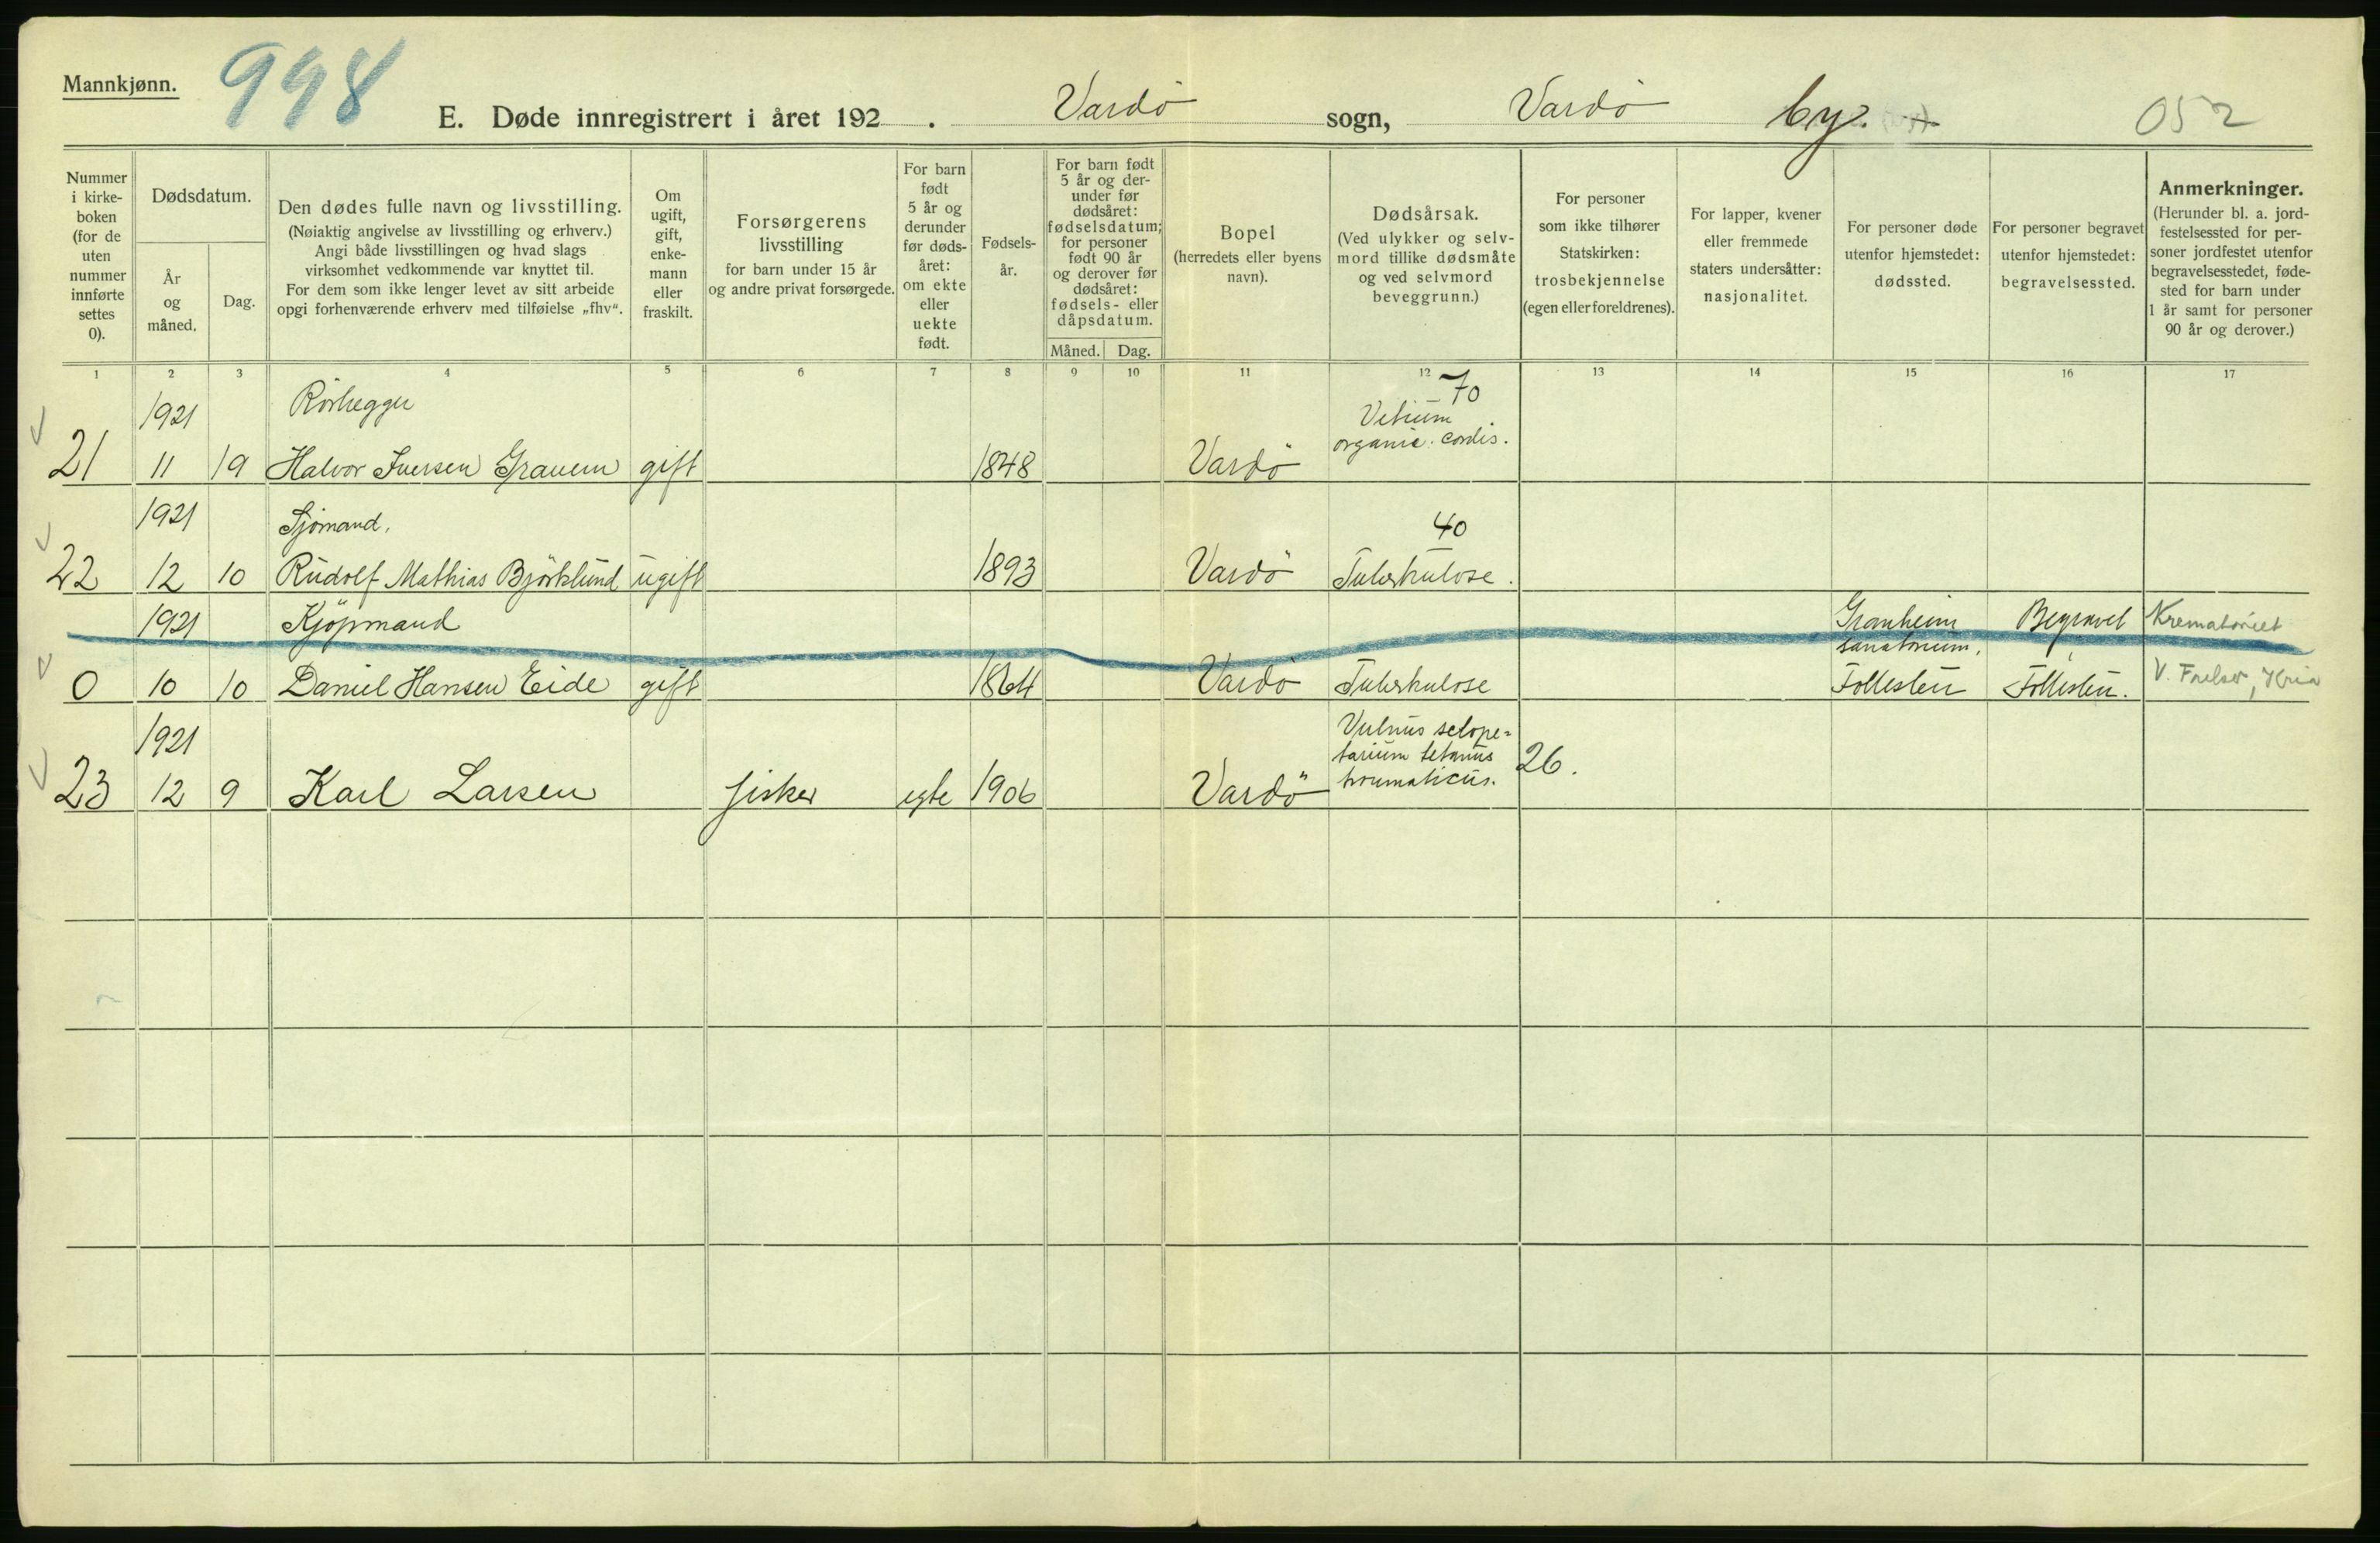 Mannkjønn.
998
E. Døde innregistrert i året 192 . Vardö sogn, Vardö by.
052
Nummer i kirke-boken (for de uten nummer innførte settes 0).
Dødsdatum.
År og måned.
Dag.
Den dødes fulle navn og livsstilling.
(Nøiaktig angivelse av livsstilling og erhverv.)
Angi både livsstillingen og hvad slags
virksomhet vedkommende var knyttet til.
For dem som ikke lenger levet av sitt arbeide
opgi forhenværende erhverv med tilføielse „fhv“.
Om ugift, gift, enke-mann eller fraskilt.
Forsørgerens
livsstilling
for barn under 15 år
og andre privat forsørgede.
For barn født 5 år og derunder før døds-året: om ekte eller uekte født.
Fødsels-år.
For barn født 5 år og der-under før dødsåret: fødselsdatum; for personer født 90 år og derover før dødsåret: fødsels- eller dåpsdatum.
Måned. Dag.
Bopel
(herredets eller byens
navn).
Dødsårsak.
(Ved ulykker og selv-
mord tillike dødsmåte
og ved selvmord
beveggrunn.)
For personer
som ikke tilhører
Statskirken:
trosbekjennelse
(egen eller foreldrenes).
For lapper, kvener
eller fremmede
staters undersåtter:
nasjonalitet.
For personer døde
utenfor hjemstedet:
dødssted.
For personer begravet
utenfor hjemstedet:
begravelsessted.
Anmerkninger.
(Herunder bl. a. jord-
festelsessted for per-
soner jordfestet utenfor
begravelsesstedet, føde-
sted for barn under
1 år samt for personer
90 år og derover.)
1 2 3 4 5 6 7 8 9 10 11 12 13 14 15 16 17
1921 Rörlegger 70
Vitium
organic. cordis.
21 11 19 Halvor Iversen Gravem gift 1848 Vardö
1921 Sjömand. 40
22 12 10 Rudolf Mathias Björklund ugift 1893 Vardö Tuberkulose.
1921 Kjöpmand Granheim Begravet Krematoriet
sanatorium,
0 10 10 Daniel Hansen Eide gift 1864 Vardö Tuberkulose Follesten Follesten. V. Frelser, Kria
1921 Vulnus sclope-
tarium tetanus 26.
traumaticus.
23 12 9 Karl Larsen fisker egte 1906 Vardö